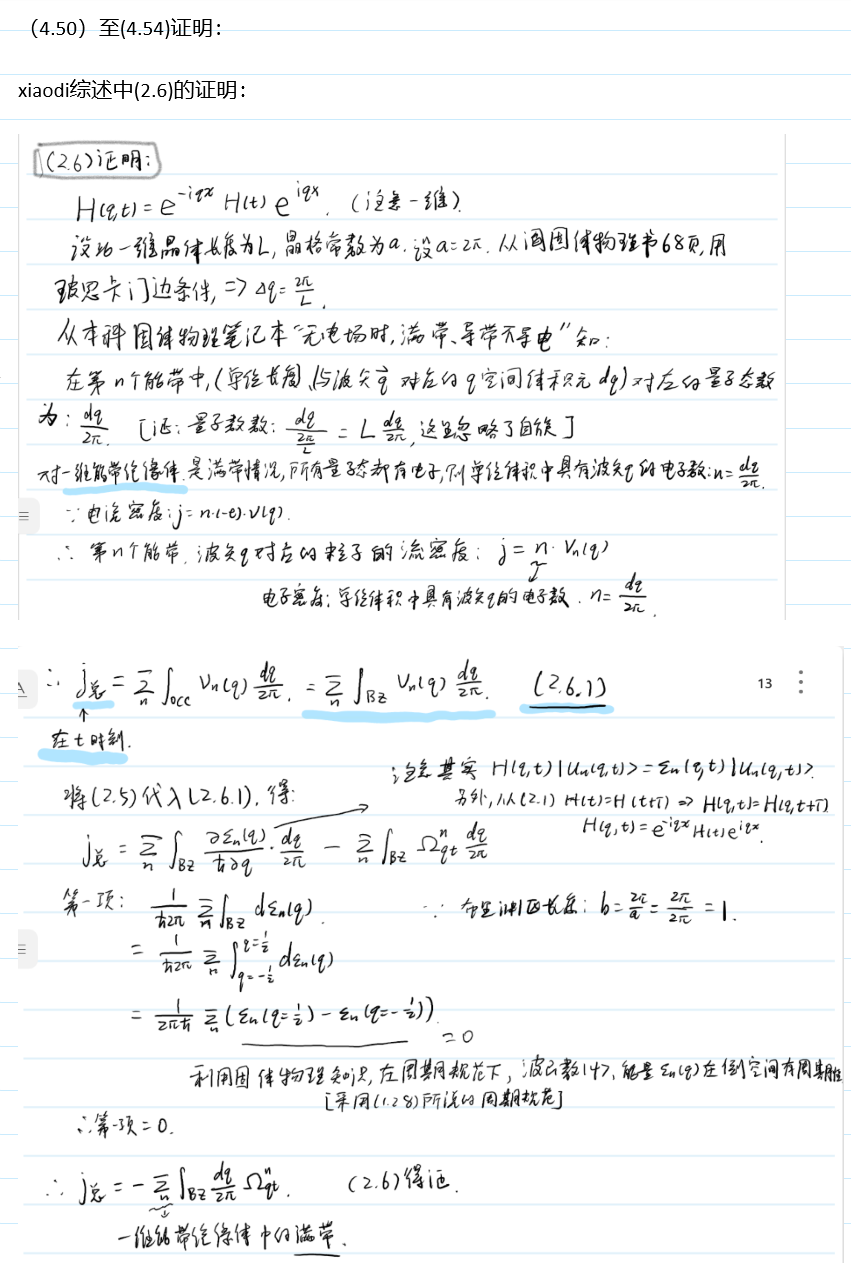 （4.50）至(4.54)证明：
xiaodi综述中(2.6)的证明：
(2.6)证明：
H(q,t) = e^{-iqx} H(t) e^{iqx}. (注意一维).
设此一维晶体长度为L, 晶格常数为a. 设a=2π. 从阎固体物理书68页, 用
玻恩卡门边条件, => Δq = 2π/L.
从本科固体物理笔记本"无电场时, 满带、导带不导电"知:
在第n个能带中, (单位长度)、(与波矢q⃗ 对应的q空间体积元dq)对应的量子态数
为: dq/2π. [证: 量子数数: dq/(2π/L) = L dq/2π, 这里忽略了自旋]
对一维能带绝缘体.是满带情况, 所有量子态都有电子, 则单位体积中具有波矢q的电子数: n = dq/2π.
∵ 电流密度: j = n·(-e)·v(q).
∴ 第n个能带, 波矢q对应的粒子的流密度: j = n·Vn(q)
电子密度: 单位体积中具有波矢q的电子数. n = dq/2π.
∴ j总 = Σ_n ∫_occ Vn(q) dq/2π. = Σ_n ∫_BZ Vn(q) dq/2π. (2.6.1)
13
在t时刻.
注意其实 H(q,t)|Un(q,t)> = εn(q,t)|Un(q,t)>.
将(2.5)代入(2.6.1), 得:
另外, 从(2.1) H(t)=H(t+T) => H(q,t)=H(q,t+T)
H(q,t)=e^{-iqx}H(t)e^{iqx}.
j总 = Σ_n ∫_BZ ∂εn(q)/ħ∂q · dq/2π - Σ_n ∫_BZ Ω^n_qt dq/2π
第一项: 1/ħ2π Σ_n ∫_BZ dεn(q). ∵ 布里渊区长度: b = 2π/a = 2π/2π = 1.
= 1/ħ2π Σ_n ∫_{q=-1/2}^{q=1/2} dεn(q)
= 1/2πħ Σ_n (εn(q=1/2) - εn(q=-1/2))
=0
利用固体物理知识, 在周期规范下, 波函数|ψ>, 能量εn(q)在倒空间有周期性
[采用(1.28)所说的周期规范]
∴ 第一项=0.
∴ j总 = - Σ_n ∫_BZ dq/2π Ω^n_qt. (2.6)得证.
一维能带绝缘体中的满带.